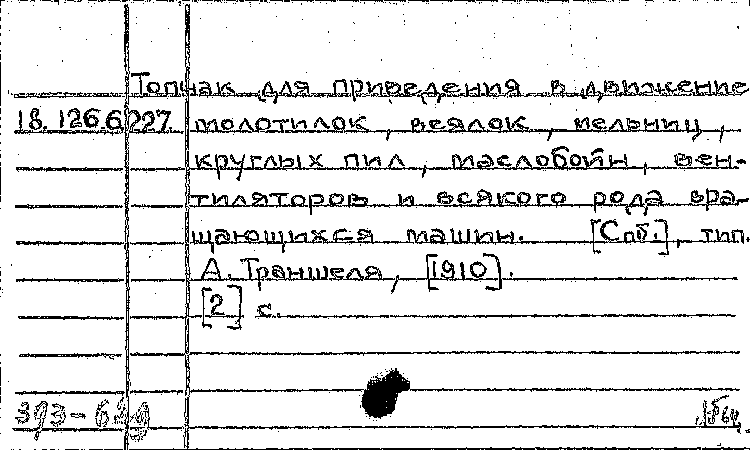 Топчак для приведения в движение
18.126.6.227. молотилок, веялок, мельниц,
круглых пил, маслобойн, вен-
тиляторов и всякого рода вра-
щающихся машин. [Спб.], тип.
А. Траншеля, [1910].
[2] с.
393-639